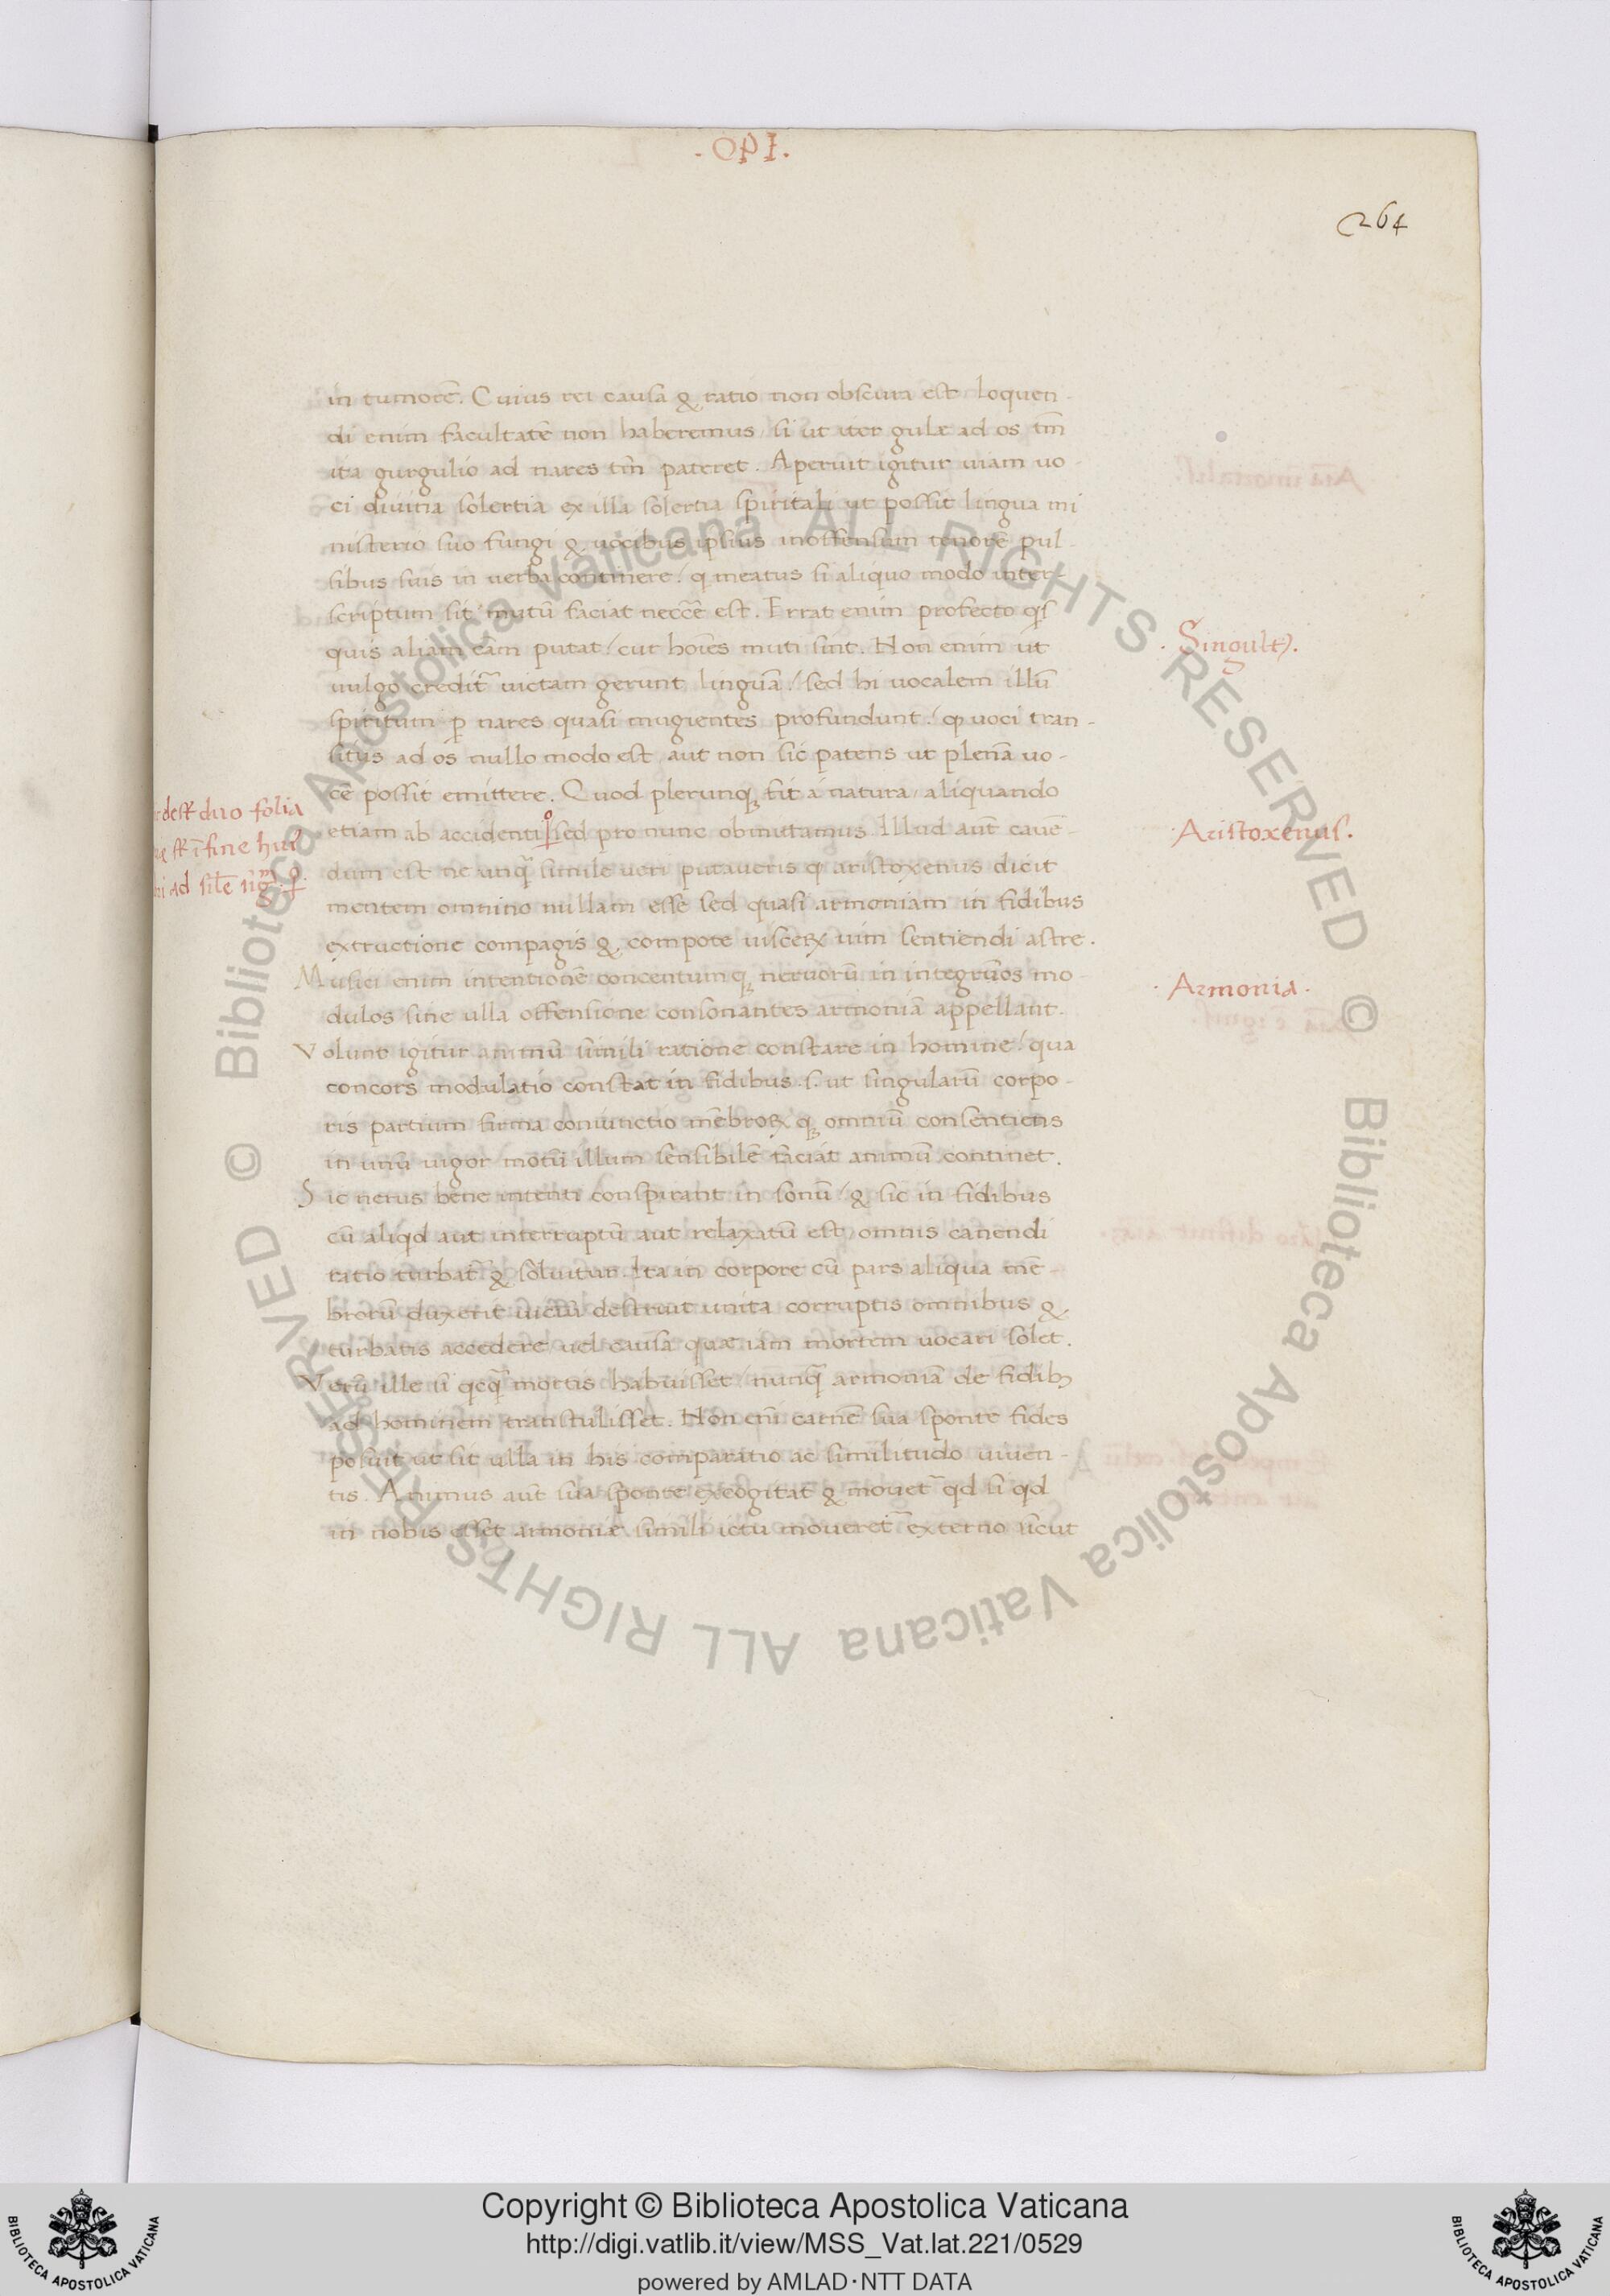 . OPI .
264
in tumorē. Cuius rei causa & ratio non obscura est loquen-
di enim facultatē non haberemus / si ut iter gulæ ad os tm̄
ita gurgulio ad nares tm̄ pateret. Aperuit igitur uiam uo-
ci diuina solertia ex illa solertia spiritali ut possit lingua mi
nisterio suo fungi & uocibus ipsius inoffensum tenorē pul-
sibus suis in uerba continere / q meatus si aliquo modo inter-
scriptum sit / mutū faciat neccē est. Errat enim profecto qs
quis aliam eam putat / cur hoīes muti sint. Non enim ut
uulgo credit᷑ uictam gerunt linguā / sed hi uocalem illū
spiritum ꝑ nares quasi mugientes profundunt / ꝙ uoci tran-
situs ad os nullo modo est aut non sic patens ut plenā uo-
cē possit emittere. Quod plerunq; fit á natura / aliquando
etiam ab accidenti sed pro nunc obmutamus. Illud aut̄ cauē-
dum est ne unq̄ simile ueri putaueris q aristoxenus dicit
mentem omnino nullam esse sed quasi armoniam in fidibus
extructione compagis & compote uisceꝝ uim sentiendi astre.
Musici enim intentionē concentumq; neruorū in integrūos mo-
dulos sine ulla offensione consonantes armoniā appellant.
Volunt igitur animū simili ratione constare in homine / qua
concors modulatio constat in fidibus .s. ut singularū corpo-
ris partium firma coniunctio mēbroꝝ q; omniū consentiens
in unū uigor motū illum sensibilē faciat animū continet.
Sic netus bene intenti conspirant in sonū / & sic in fidibus
cū aliqd aut interruptū aut relaxatū est / omnis canendi
ratio turbat᷑ & soluitur. Ita in corpore cū pars aliqua mē-
brorū duxerit uiciū destruit unita corruptis omnibus &
turbatis accedere uel causa quæ iam mortem uocari solet.
Verū ille si qcq̄ mortis habuisset / nunq̄ armoniā de fidibꝫ
ad hominem transtulisset. Non enī carnē sua sponte fides
posuit ut sit ulla in his comparatio ac similitudo uiuen-
tis. Animus aut̄ sua sponte excogitat & mouet᷑ qd si qd
in nobis esset armoniæ simili ictu moueret᷑ externo sicut
dest duo folia
st ī fine hui
ad sitē sig̅
. Singultꝰ.
. Aristoxenus.
. Armonia .
© Biblioteca Apostolica Vaticana ALL RIGHTS RESERVED © Biblioteca Apostolica Vaticana ALL RIGHTS RESERVED
Copyright © Biblioteca Apostolica Vaticana
http://digi.vatlib.it/view/MSS_Vat.lat.221/0529
powered by AMLAD · NTT DATA
BIBLIOTECA APOSTOLICA VATICANA
BIBLIOTECA APOSTOLICA VATICANA